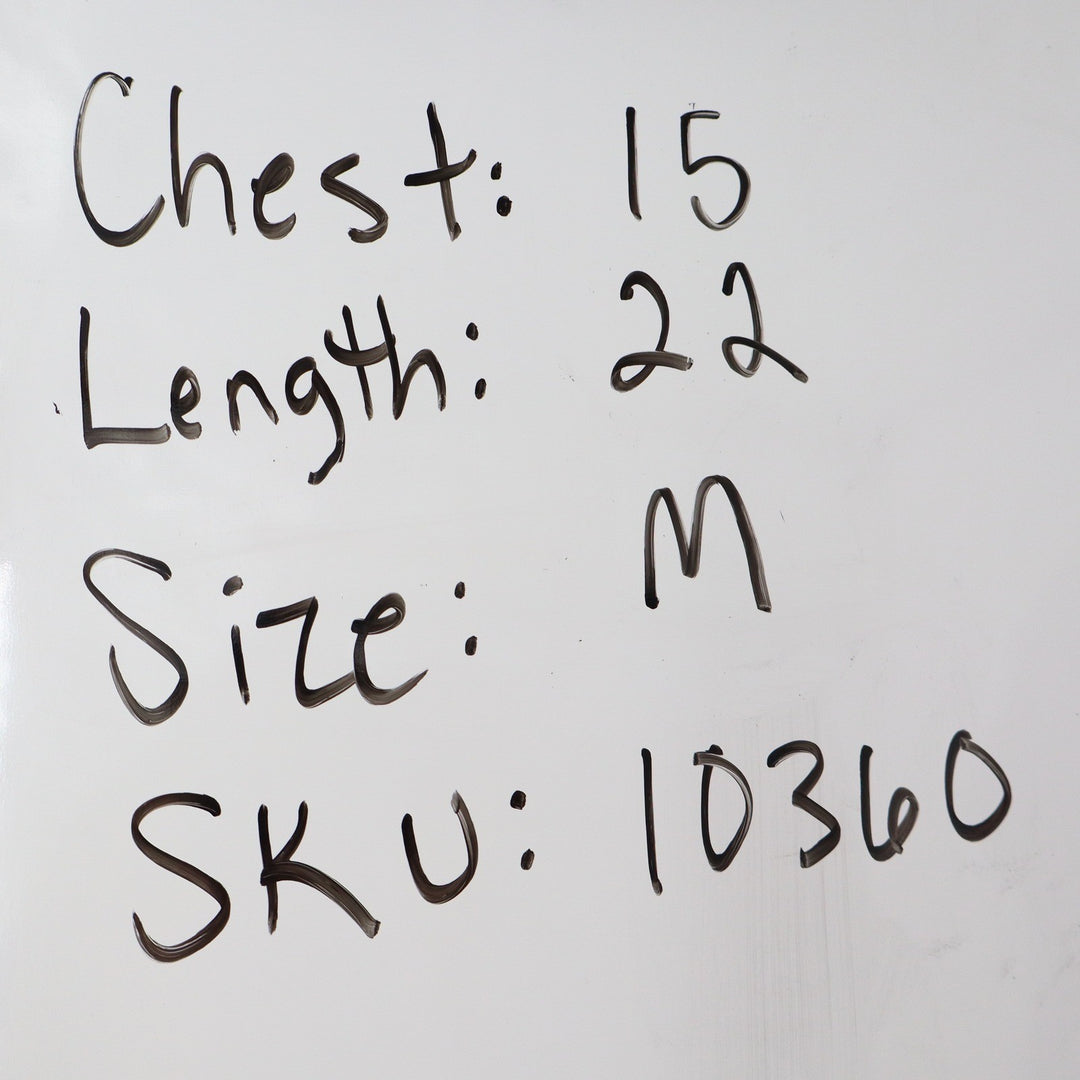 Chest: 15
Length: 22
Size: M
SKU: 10360